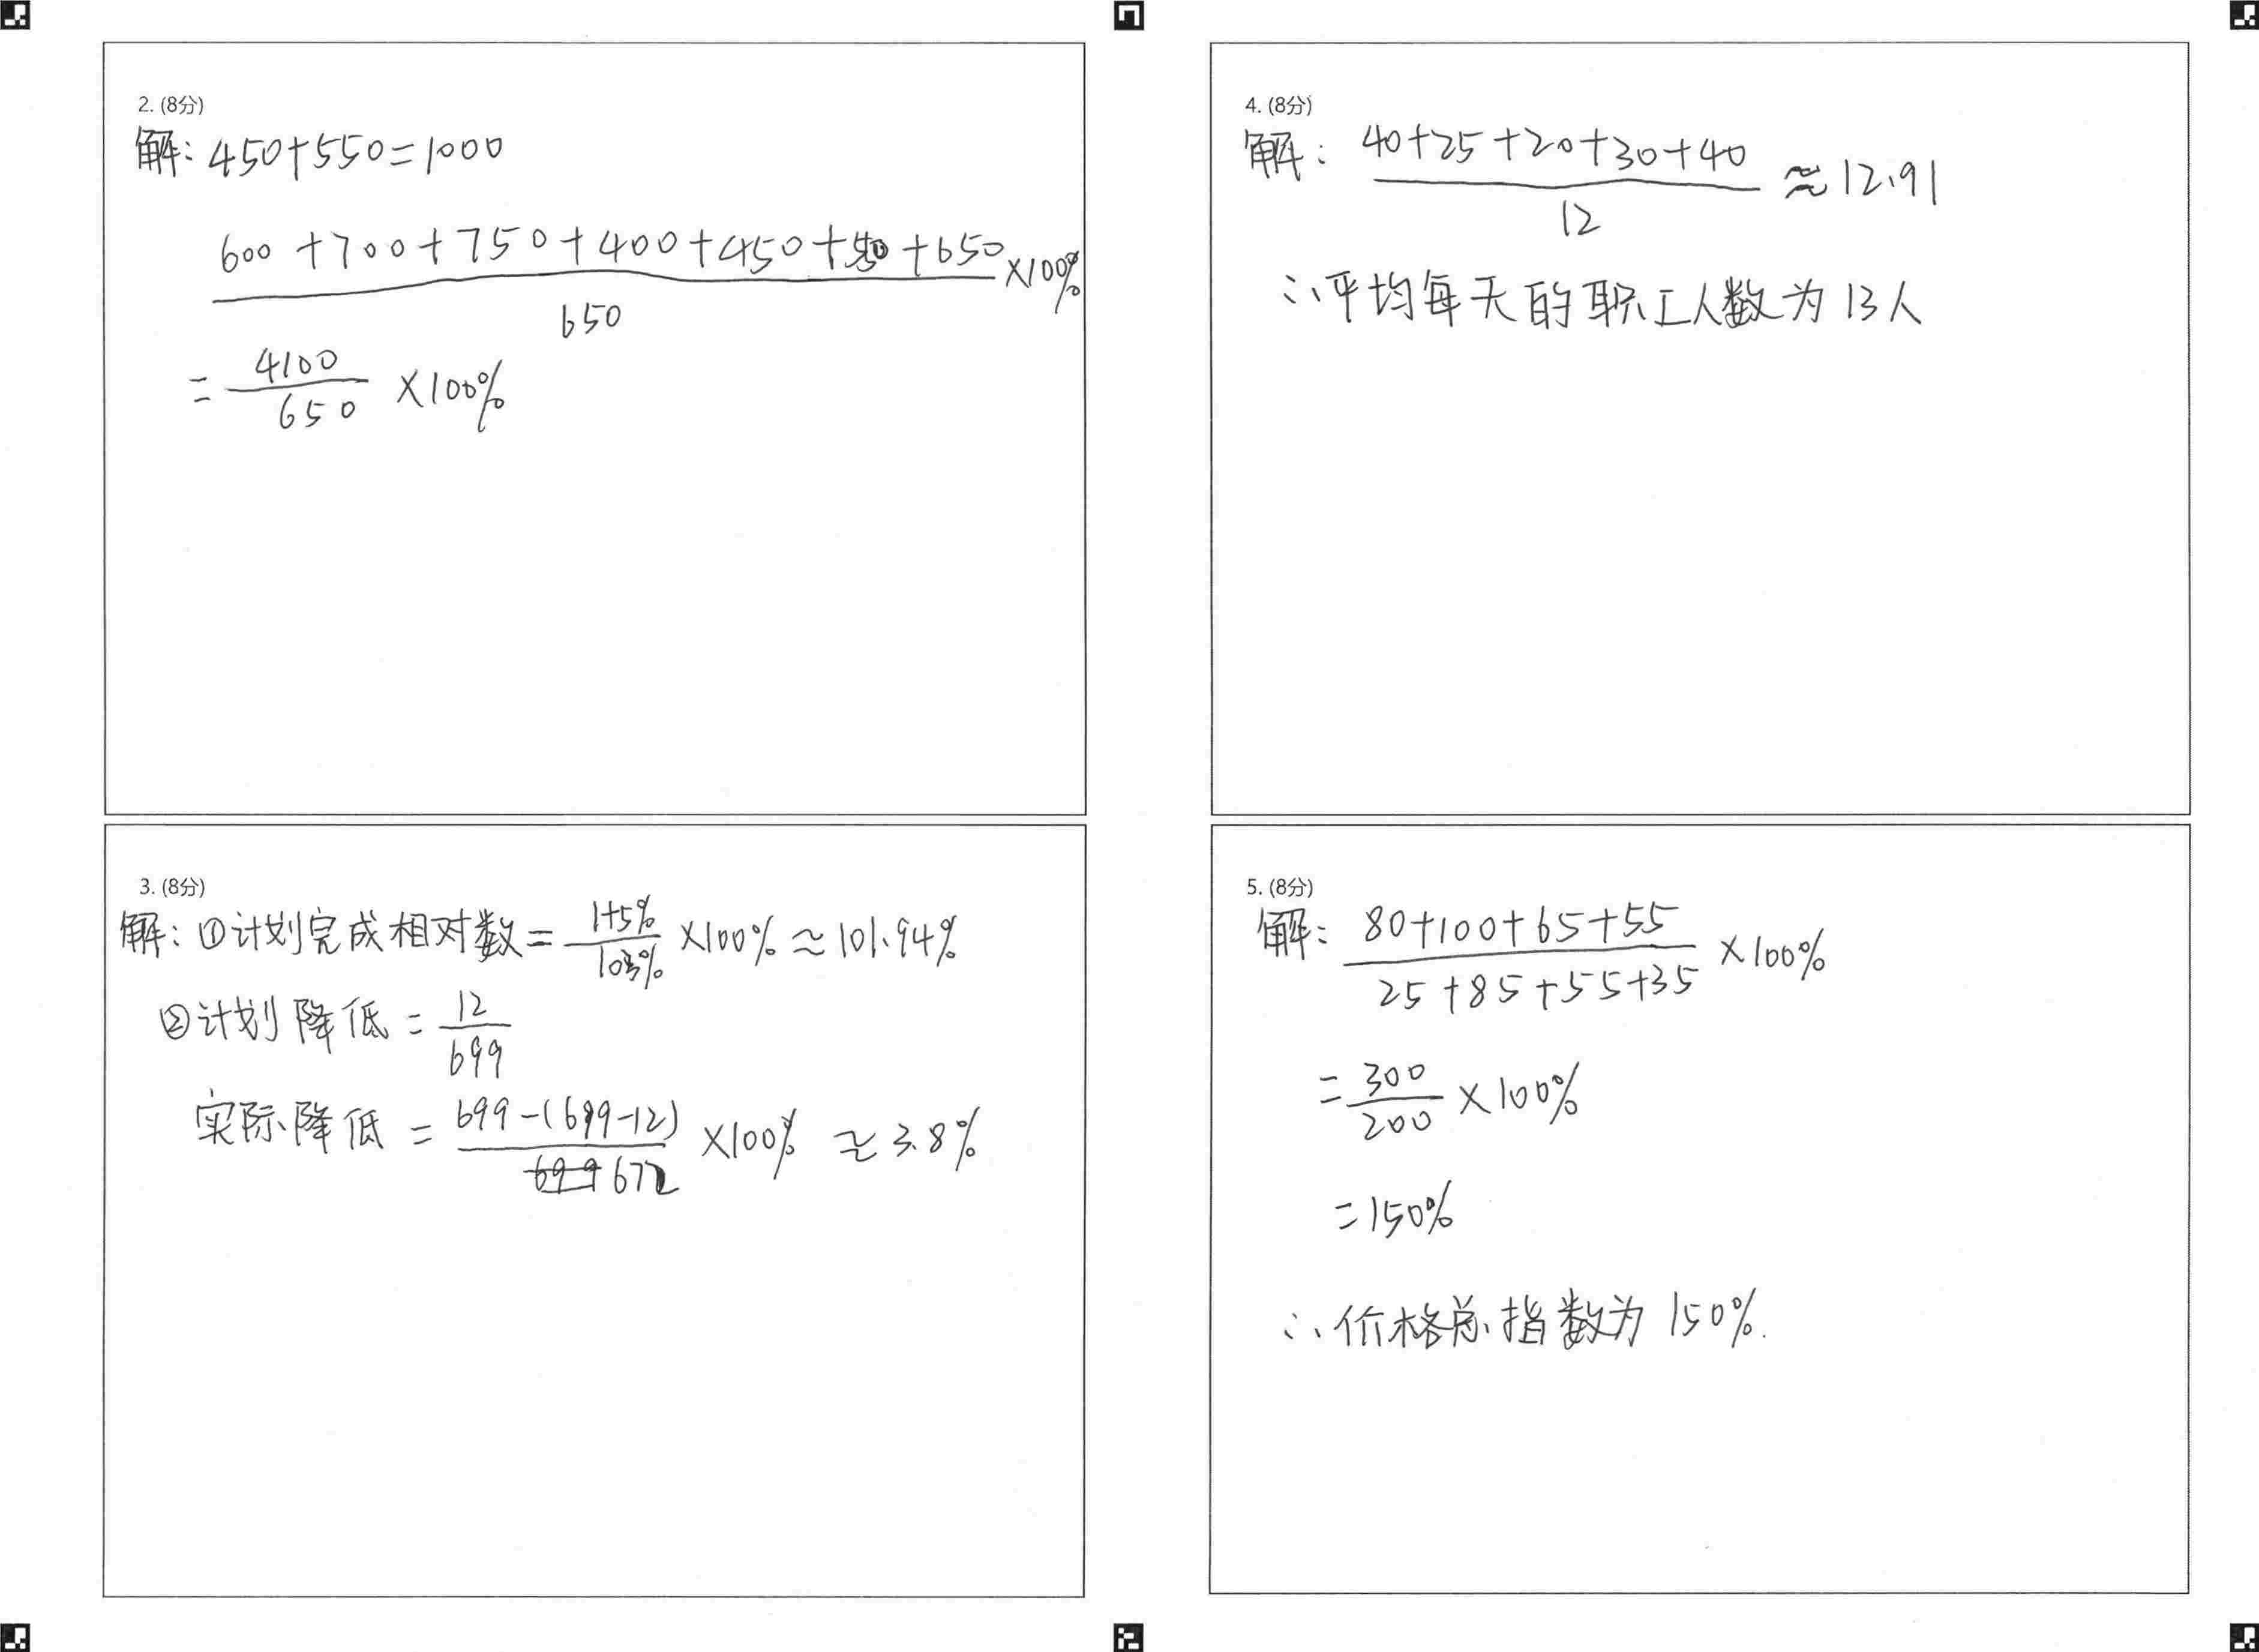 2. (8分)
解: 450+550=1000
600+700+750+400+450+550+650
×100%
650
= 4100/650 ×100%
3. (8分)
解: ①计划完成相对数= 1+5%/103% ×100% ≈101.94%
②计划降低 = 12/699
实际降低 = 699-(699-12)/672 ×100% ≈ 3.8%
4. (8分)
解: 40+25+20+30+40/12 ≈12.91
∴平均每天的职工人数为13人
5. (8分)
解: 80+100+65+55/25+85+55+35 ×100%
= 300/200 ×100%
=150%
∴价格总指数为150%.